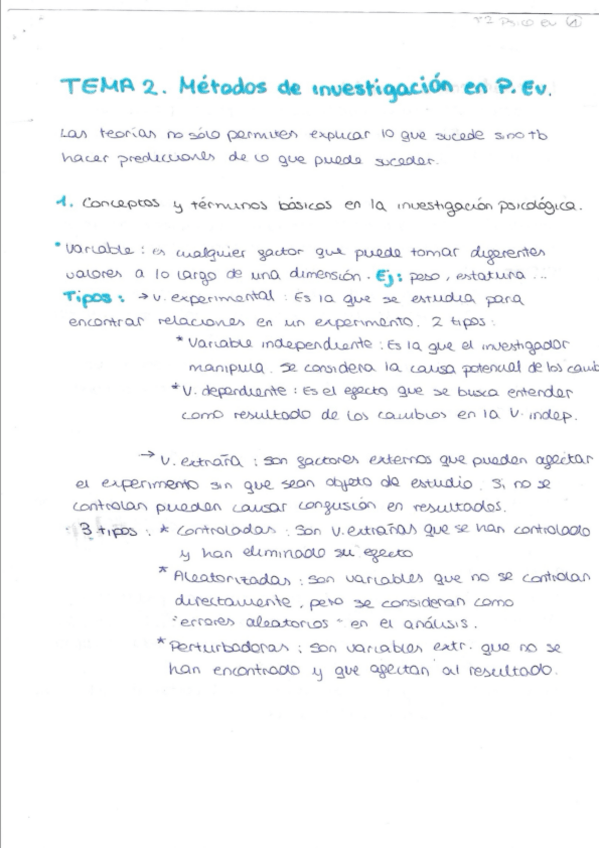 T2 Psico Ev ①
TEMA 2. Métodos de investigación en P. Ev.
Las teorías no sólo permiten explicar lo que sucede sino tb
hacer predicciones de lo que puede suceder.
1. Conceptos y términos básicos en la investigación psicológica.
* Variable : es cualquier factor que puede tomar diferentes
valores a lo largo de una dimensión. Ej: peso, estatura ...
Tipos : → v. experimental : Es la que se estudia para
encontrar relaciones en un experimento. 2 tipos :
* Variable independiente : Es la que el investigador
manipula. Se considera la causa potencial de los camb
* V. dependiente : Es el efecto que se busca entender
como resultado de los cambios en la V. indep.
→ V. extraña : Son factores externos que pueden afectar
el experimento sin que sean objeto de estudio. Si no se
controlan pueden causar confusión en resultados.
3 tipos : * Controladas : Son V. extrañas que se han controlado
y han eliminado su efecto
* Aleatorizadas : Son variables que no se controlan
directamente, pero se consideran como
"errores aleatorios" en el análisis.
* Perturbadoras : Son variables extr. que no se
han encontrado y que afectan al resultado.